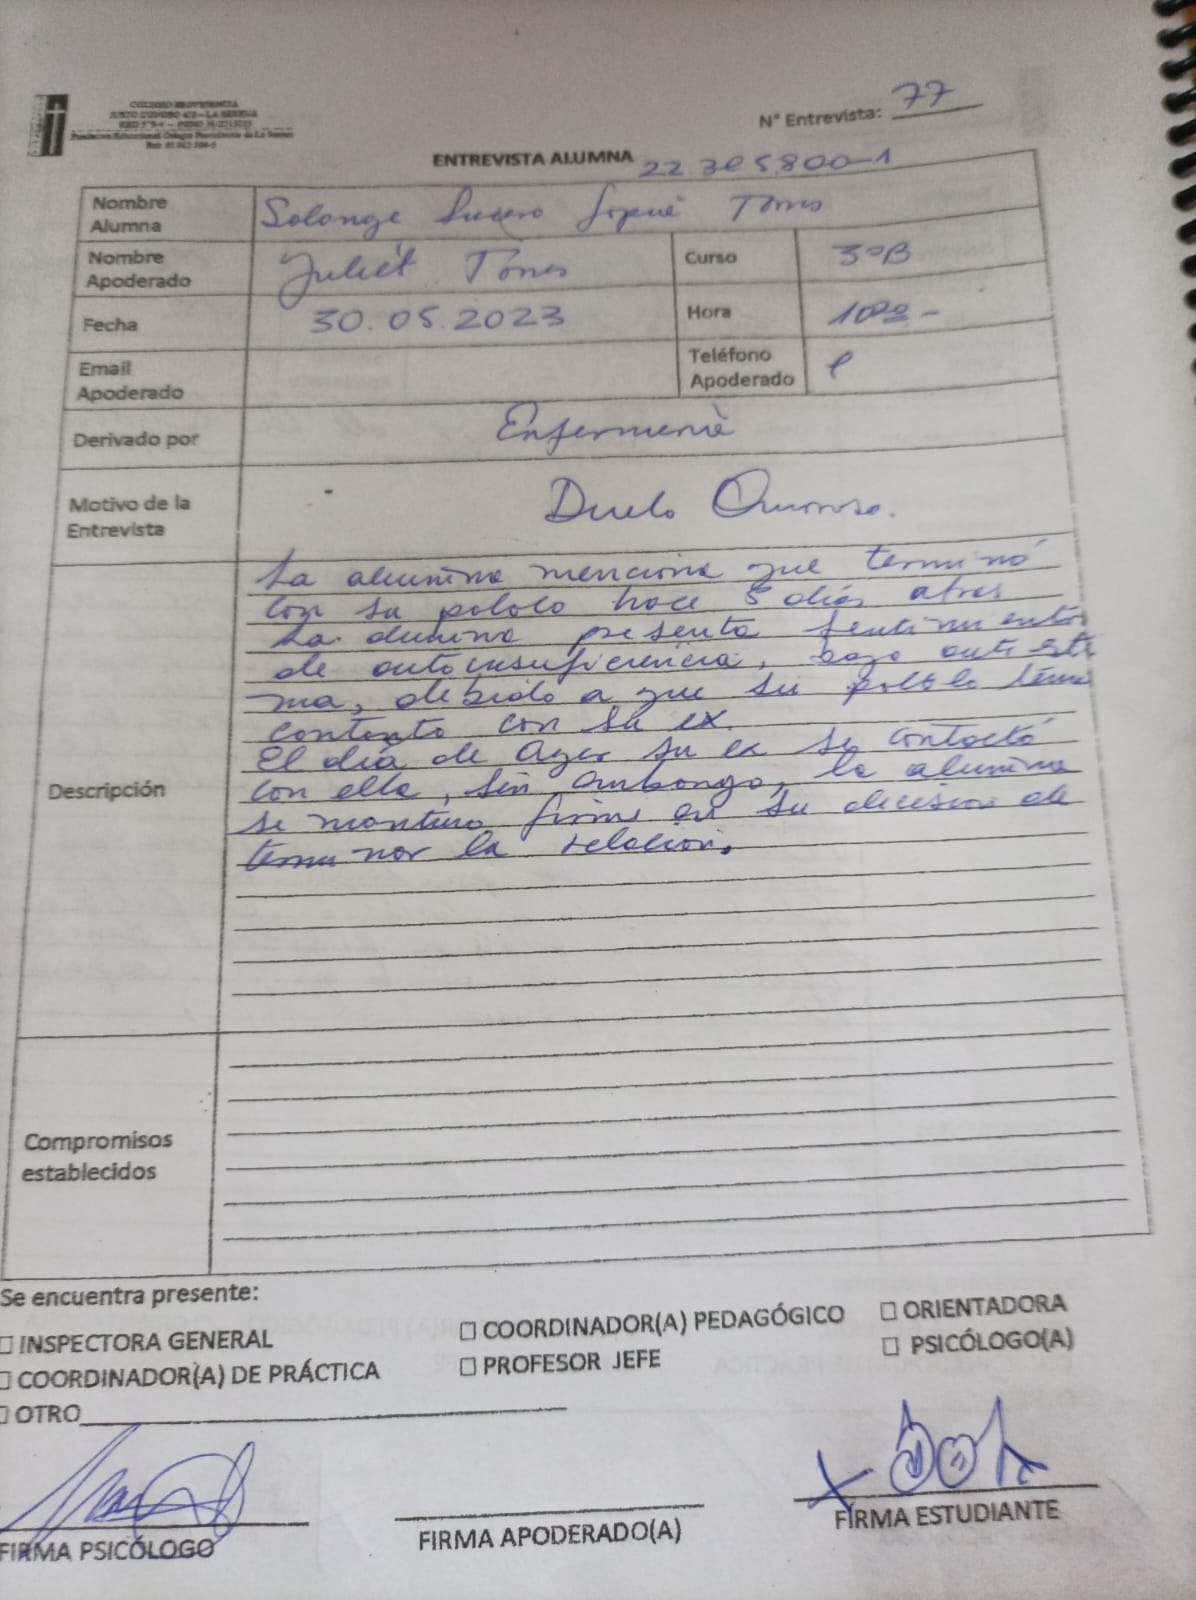 COLEGIO PROVIDENCIA
LA SERENA
Fundacion Educacional Colegio Providencia de La Serena
N° Entrevista: 77
ENTREVISTA ALUMNA 22.305.800-1
Nombre Alumna Solange Torres
Nombre Apoderado Juliet Torres Curso 3°B
Fecha 30.05.2023 Hora 10:00.-
Email Apoderado Teléfono Apoderado
Derivado por Enfermería
Motivo de la Entrevista Duelo Amoroso.
Descripción
La alumna menciona que terminó
con su pololo hace 5 días atras
La alumna presenta sentimientos
de autoinsuficiencia, baja autoesti
ma, debido a que su pololo tenia
contacto con su ex.
El día de Ayer su ex se contactó
con ella, sin embargo, la alumna
se mantuvo firme en su decision de
terminar la relación.
Compromisos establecidos
Se encuentra presente:
INSPECTORA GENERAL COORDINADOR(A) PEDAGÓGICO ORIENTADORA
COORDINADOR(A) DE PRÁCTICA PROFESOR JEFE PSICÓLOGO(A)
OTRO
FIRMA PSICÓLOGO FIRMA APODERADO(A) FIRMA ESTUDIANTE